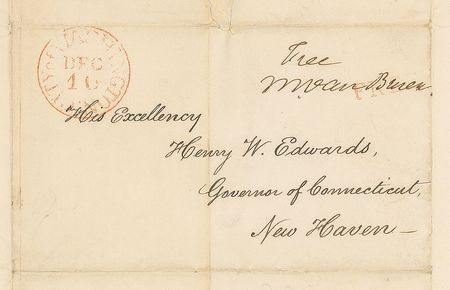 CITY OF WASHINGTON
DEC
10
Free
MVan Buren
FREE
His Excellency
Henry W. Edwards,
Governor of Connecticut,
New Haven —